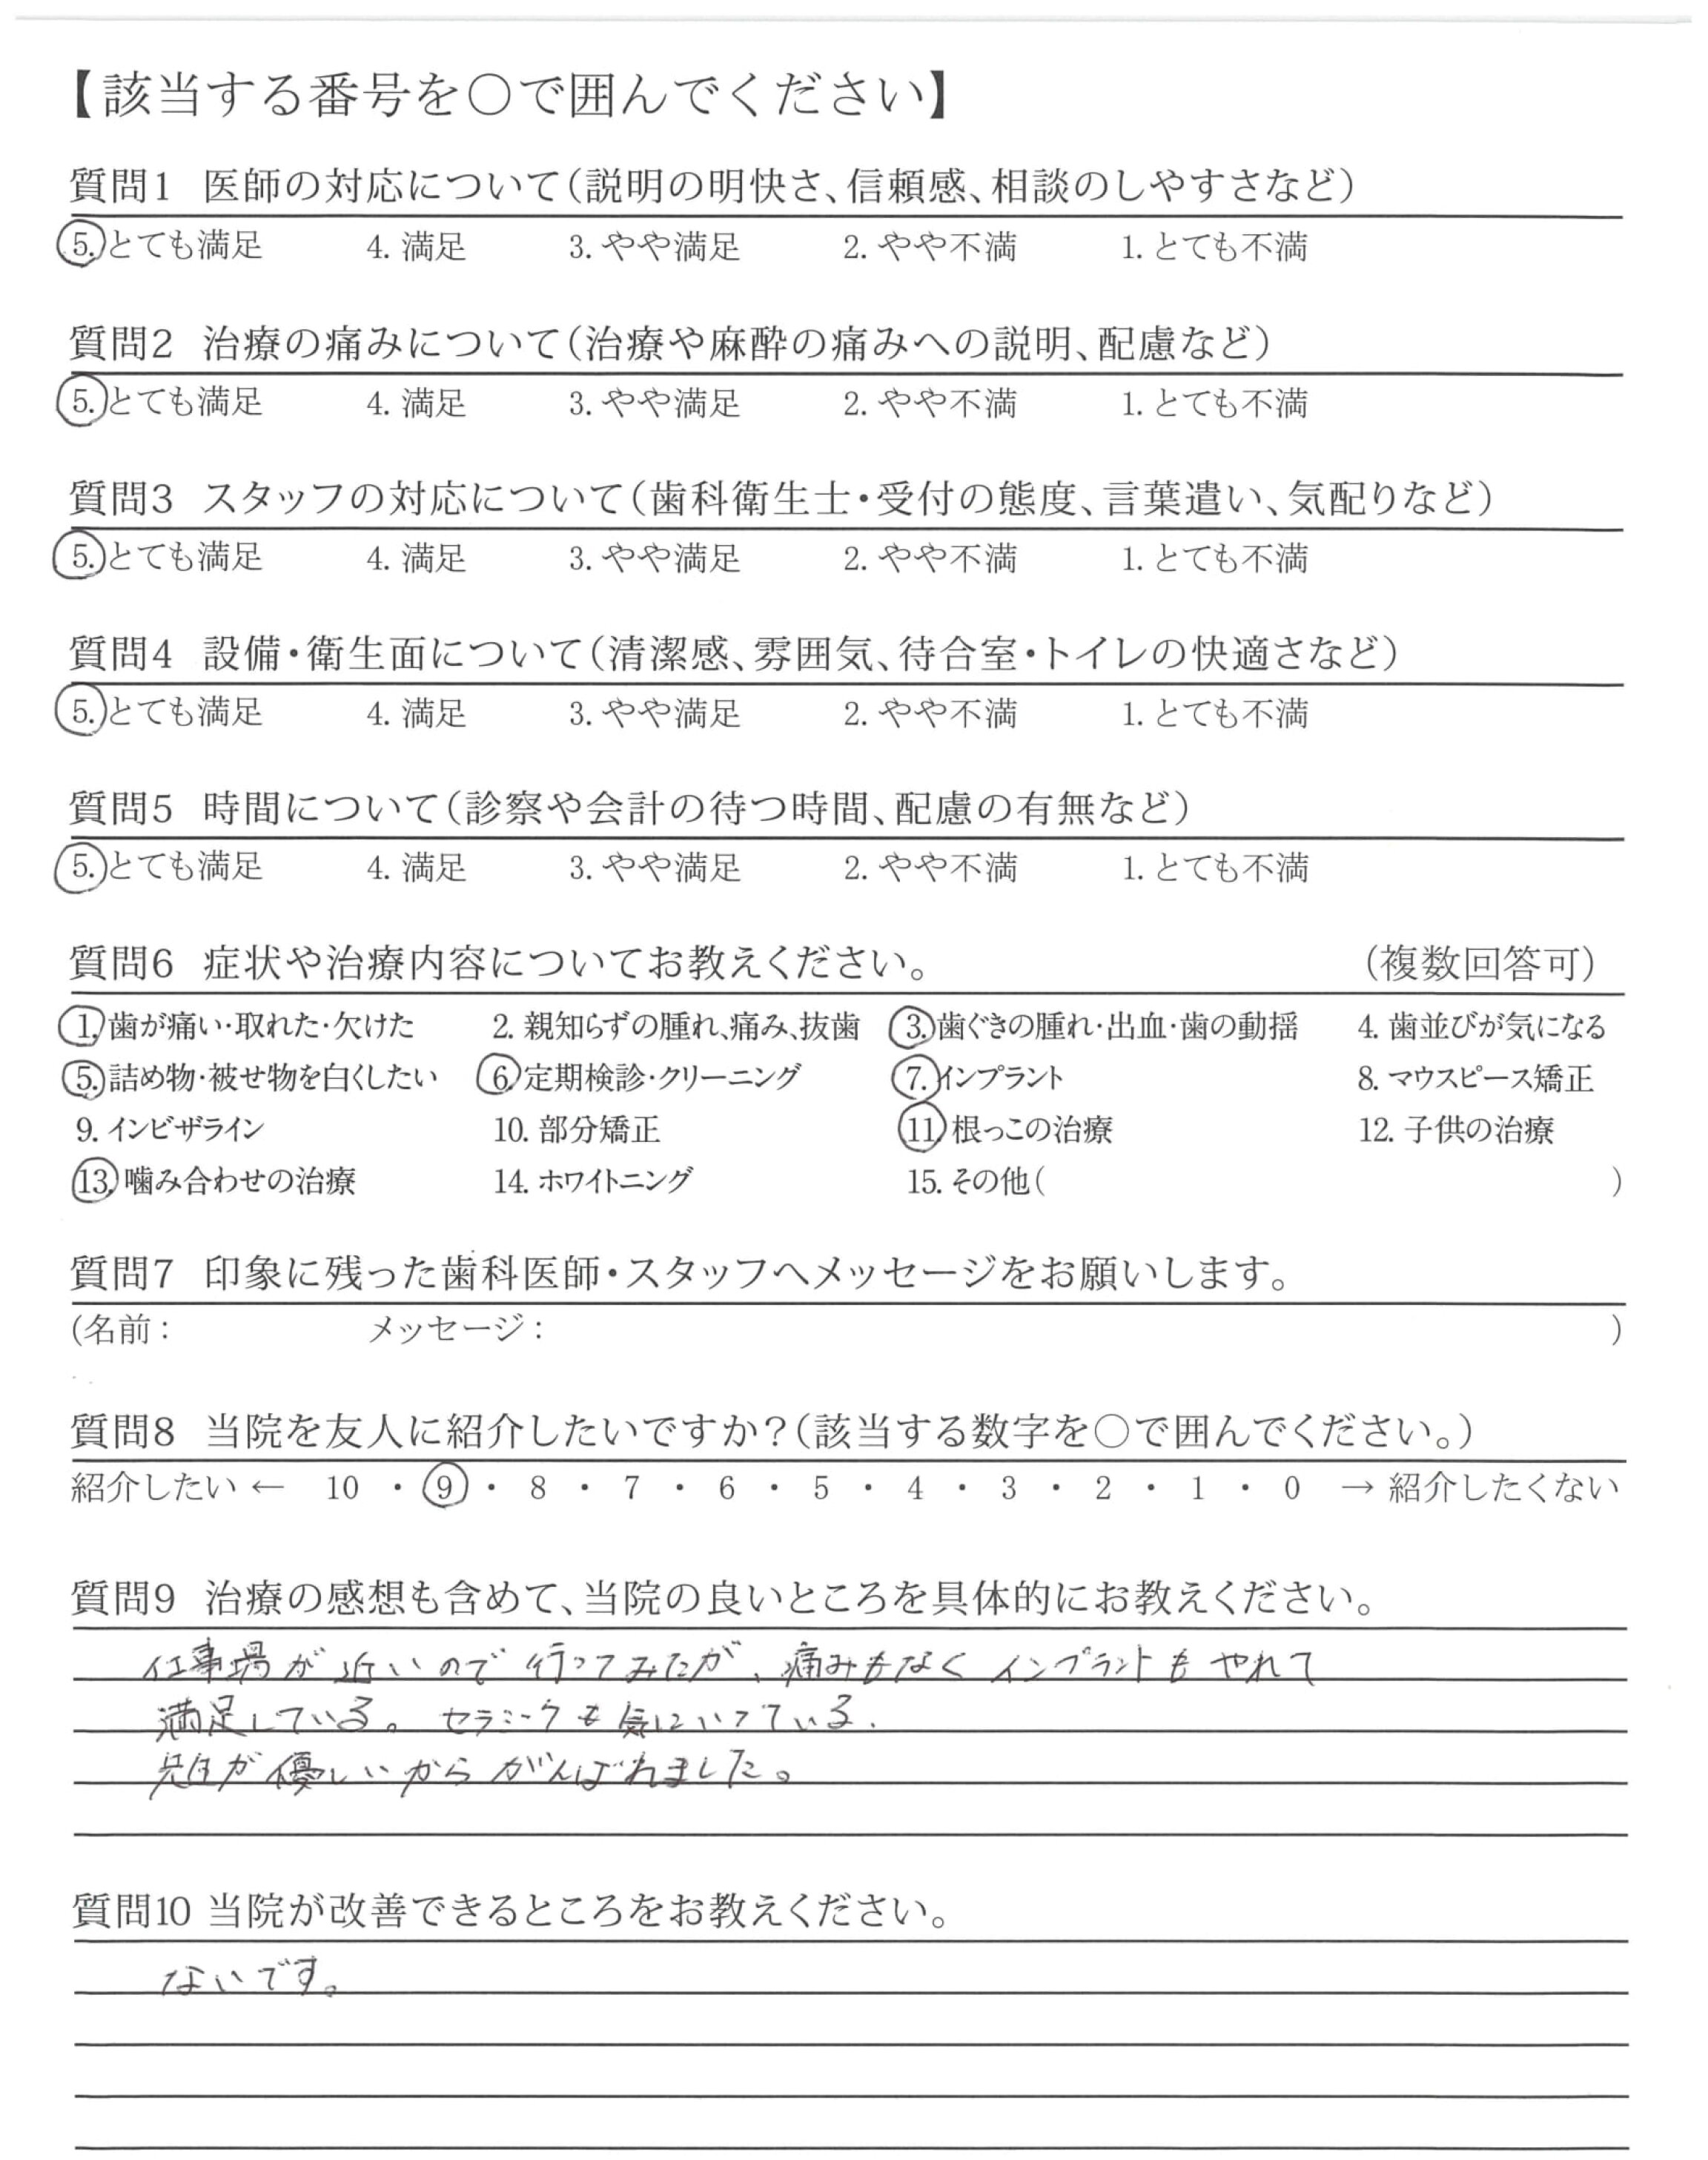 【該当する番号を○で囲んでください】
質問1 医師の対応について(説明の明快さ、信頼感、相談のしやすさなど)
5. とても満足 4. 満足 3. やや満足 2. やや不満 1. とても不満
質問2 治療の痛みについて(治療や麻酔の痛みへの説明、配慮など)
5. とても満足 4. 満足 3. やや満足 2. やや不満 1. とても不満
質問3 スタッフの対応について(歯科衛生士・受付の態度、言葉遣い、気配りなど)
5. とても満足 4. 満足 3. やや満足 2. やや不満 1. とても不満
質問4 設備・衛生面について(清潔感、雰囲気、待合室・トイレの快適さなど)
5. とても満足 4. 満足 3. やや満足 2. やや不満 1. とても不満
質問5 時間について(診察や会計の待つ時間、配慮の有無など)
5. とても満足 4. 満足 3. やや満足 2. やや不満 1. とても不満
質問6 症状や治療内容についてお教えください。 (複数回答可)
1. 歯が痛い・取れた・欠けた 2. 親知らずの腫れ、痛み、抜歯 3. 歯ぐきの腫れ・出血・歯の動揺 4. 歯並びが気になる
5. 詰め物・被せ物を白くしたい 6. 定期検診・クリーニング 7. インプラント 8. マウスピース矯正
9. インビザライン 10. 部分矯正 11. 根っこの治療 12. 子供の治療
13. 噛み合わせの治療 14. ホワイトニング 15. その他( )
質問7 印象に残った歯科医師・スタッフへメッセージをお願いします。
(名前: メッセージ: )
質問8 当院を友人に紹介したいですか?(該当する数字を○で囲んでください。)
紹介したい ← 10 ・ 9 ・ 8 ・ 7 ・ 6 ・ 5 ・ 4 ・ 3 ・ 2 ・ 1 ・ 0 → 紹介したくない
質問9 治療の感想も含めて、当院の良いところを具体的にお教えください。
仕事場が近いので行ってみたが、痛みもなくインプラントもやれて
満足している。セラミックも気にいっている.
先生が優しいからがんばれました。
質問10 当院が改善できるところをお教えください。
ないです。